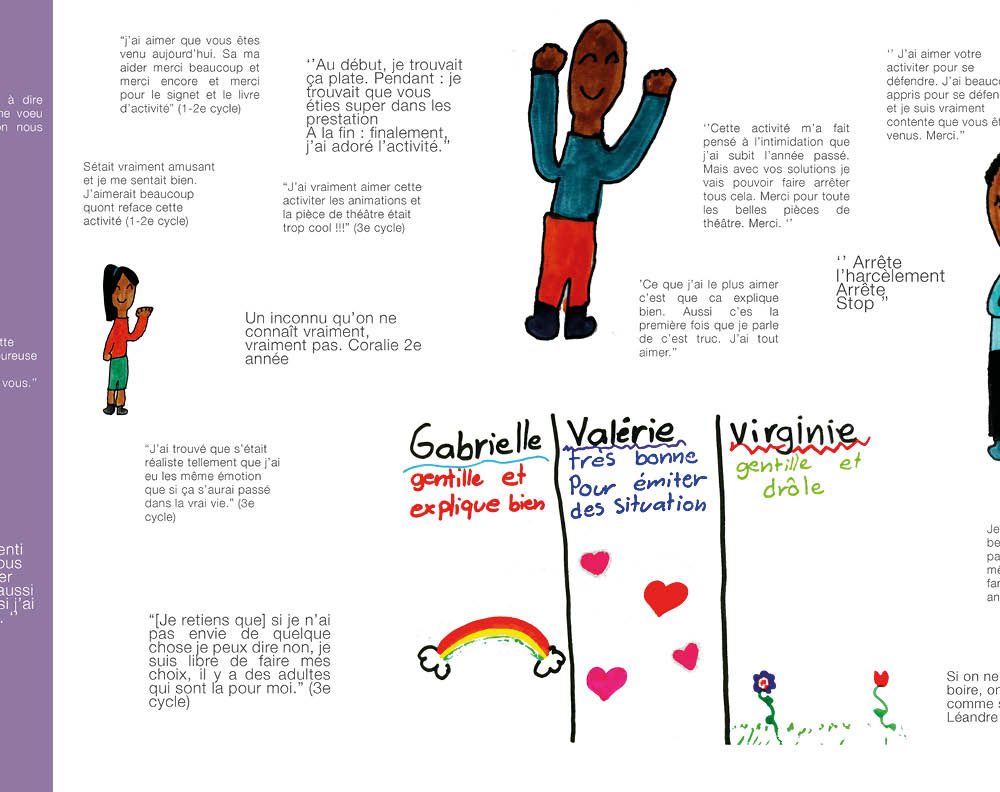 à dire
voeu
on nous
vous.”
aussi
si j’ai
“j’ai aimer que vous êtes
venu aujourd’hui. Sa ma
aider merci beaucoup et
merci encore et merci
pour le signet et le livre
d’activité” (1-2e cycle)
‘’Au début, je trouvait
ça plate. Pendant : je
trouvait que vous
éties super dans les
prestation
A la fin : finalement,
j’ai adoré l’activité.”
Sétait vraiment amusant
et je me sentait bien.
J’aimerait beaucoup
quont reface cette
activité (1-2e cycle)
“J’ai vraiment aimer cette
activiter les animations et
la pièce de théâtre était
trop cool !!!” (3e cycle)
‘’Cette activité m’a fait
pensé à l’intimidation que
j’ai subit l’année passé.
Mais avec vos solutions je
vais pouvoir faire arrêter
tous cela. Merci pour toute
les belles pièces de
théâtre. Merci. ‘’
‘’ J’ai aimer votre
activiter pour se
défendre. J’ai
appris pour se
et je suis vraiment
contente que vous
venus. Merci.”
‘’ Arrête
l’harcèlement
Arrête
Stop ”
’Ce que j’ai le plus aimer
c’est que ca explique
bien. Aussi c’es la
première fois que je parle
de c’est truc. J’ai tout
aimer.”
Un inconnu qu’on ne
connaît vraiment,
vraiment pas. Coralie 2e
année
“J’ai trouvé que s’était
réaliste tellement que j’ai
eu les même émotion
que si ça s’aurai passé
dans la vrai vie.” (3e
cycle)
“[Je retiens que] si je n’ai
pas envie de quelque
chose je peux dire non, je
suis libre de faire mes
choix, il y a des adultes
qui sont là pour moi.” (3e
cycle)
Gabrielle
gentille et
explique bien
Valérie
très bonne
Pour émiter
des Situation
virginie
gentille et
drôle
Je
Si on ne
boire,
comme
Léandre